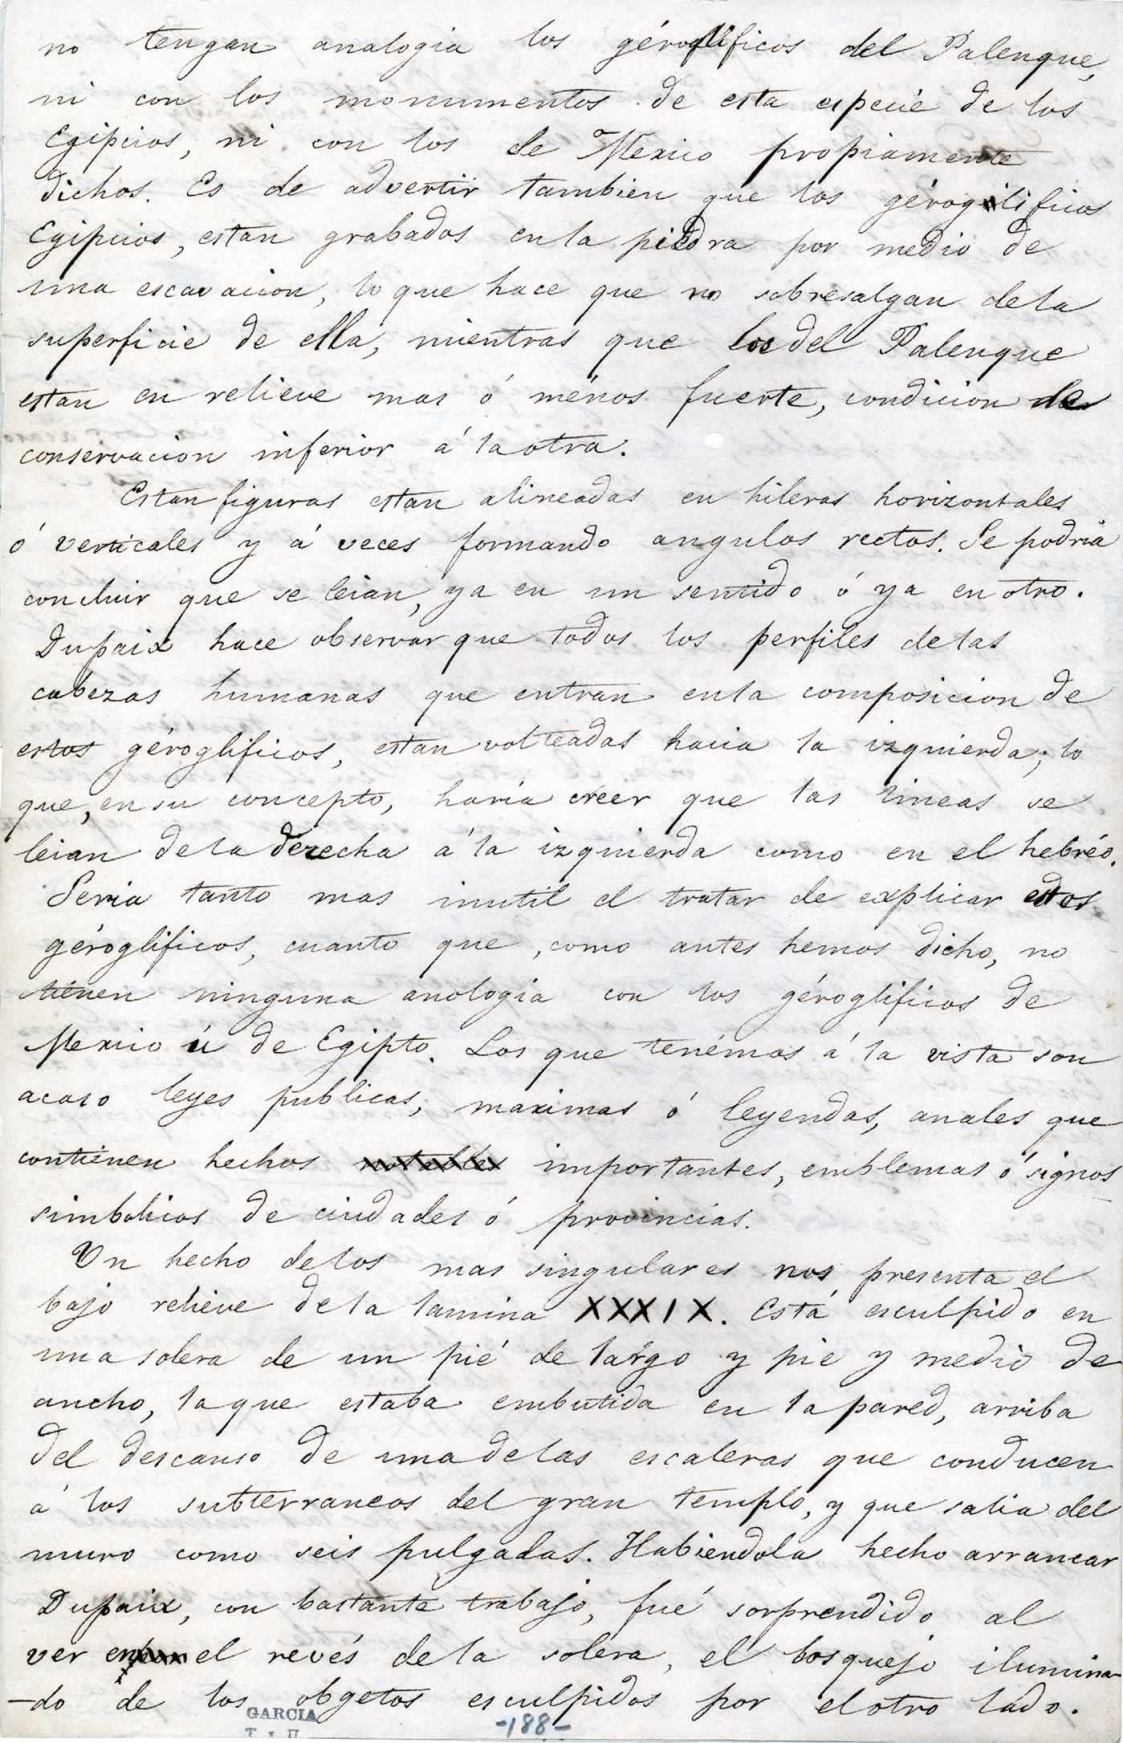 no tengan analogia los géroglificos del Palenque,
ni con los monumentos de esta especie de los
Egipcios, ni con los de Mexico propiamente
dichos. Es de advertir tambien que los géroglificos
Egipcios, estan grabados en la piedra por medio de
una escavacion, lo que hace que no sobresalgan de la
superficie de ella, mientras que los del Palenque
estan en relieve mas ó ménos fuerte, condicion de
conservacion inferior á la otra.
Estan figuras estan alineadas en hileras horizontales
ó verticales y á veces formando angulos rectos. Se podria
concluir que se leian, ya en un sentido ó ya en otro.
Dupaix hace observar que todos los perfiles de las
cabezas humanas que entran en la composicion de
estos géroglificos, estan volteadas hacia la izquierda; lo
que, en su concepto, haria créer que las lineas se
leian de la derecha á la izquierda como en el hebréo.
Seria tanto mas inutil el tratar de explicar estos
géroglificos, cuanto que, como antes hemos dicho, no
tienen ninguna anologia con los géroglificos de
Mexico ú de Egipto. Los que tenémos á la vista son
acaso leyes publicas, maximas ó leyendas, anales que
contienen hechos notables importantes, emblemas ó signos
simbolicos de ciudades ó provincias.
Un hecho de los mas singulares nos presenta el
bajo relieve de la lamina XXXIX. Está esculpido en
una solera de un pié de largo y pie y medio de
ancho, la que estaba embutida en la pared, arriba
del descanso de una de las escaleras que conducen
á los subterraneos del gran templo, y que salia del
muro como seis pulgadas. Habiendola hecho arrancar
Dupaix, con bastante trabajo, fué sorprendido al
ver en el revés de la solera, el bosquejo ilumina-
-do de los obgetos esculpidos por el otro lado.
GARCIA
-188-